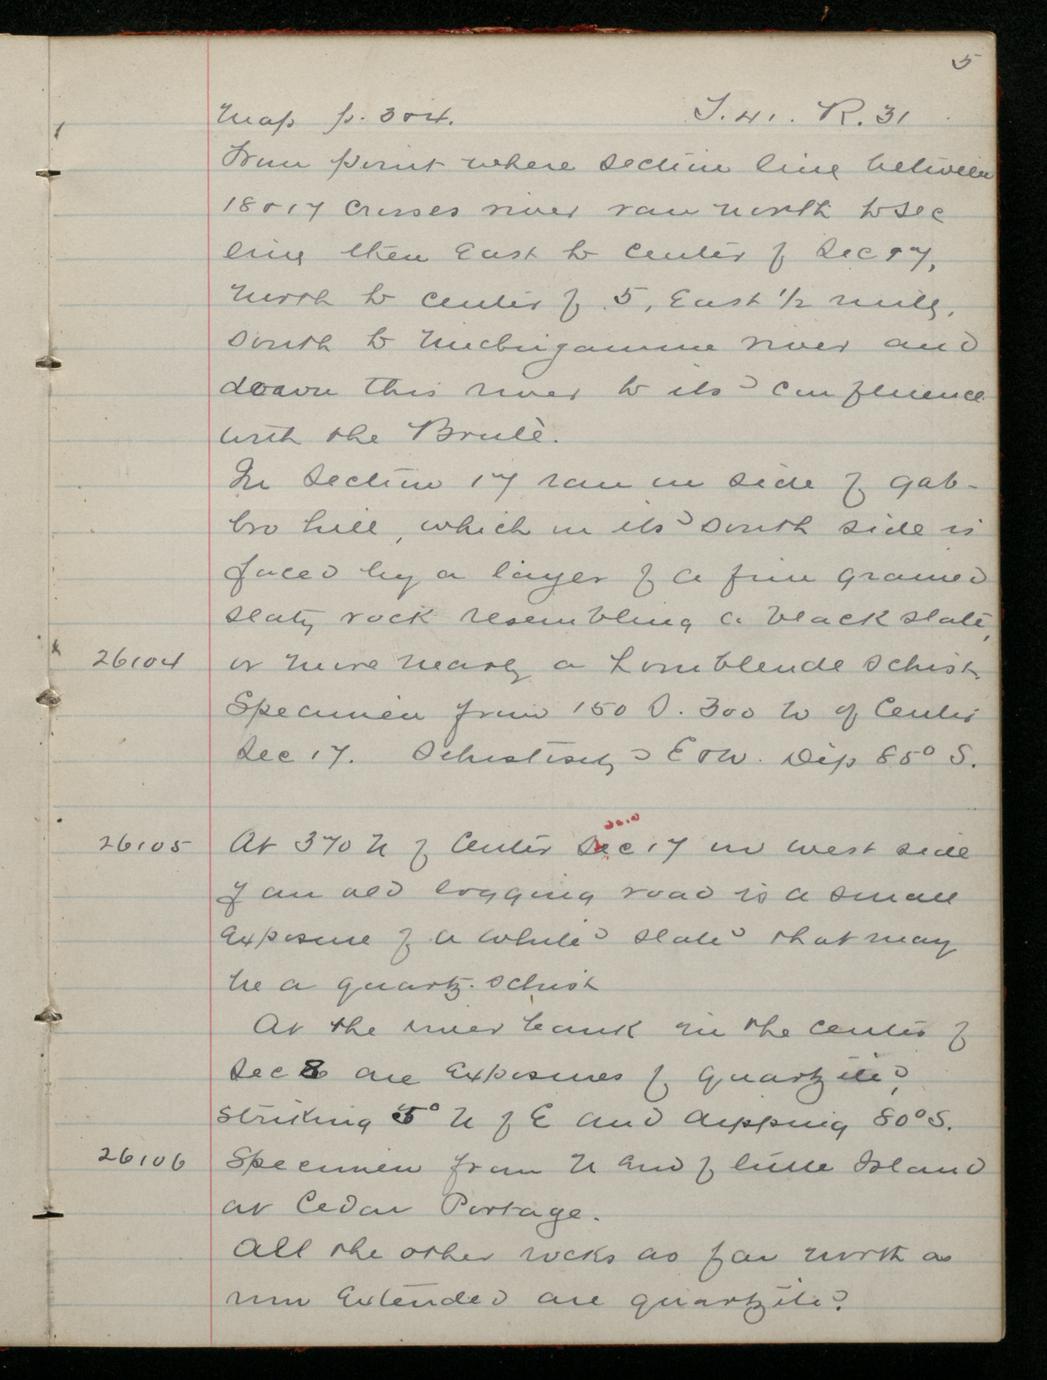 5
Map p. 304. T. 41. R. 31
From point where section line between
18 & 17 crosses river ran north to sec
line then East to center of Sec 17,
north to center of 5, East 1/2 mile,
South to Michigamme river and
down this river to its confluence
with the Brulè.
In Section 17 ran on side of gab-
bro hill, which on its south side is
faced by a layer of a fine grained
slaty rock resembling a black slate,
26104 or more nearly a hornblende schist.
Specimen from 150 S. 300 W of Center
Sec 17. Schistosity E & W. Dip 85° S.
26105 At 370 N of Center Sec 17 on west side
of an old logging road is a small
exposure of a white slate that may
be a quartz-schist
At the river bank in the center of
Sec 8 are exposures of quartzite,
striking 5° N of E and dipping 80° S.
26106 Specimen from N end of little Island
at Cedar Portage.
All the other rocks as far north as
run extended are quartzite.